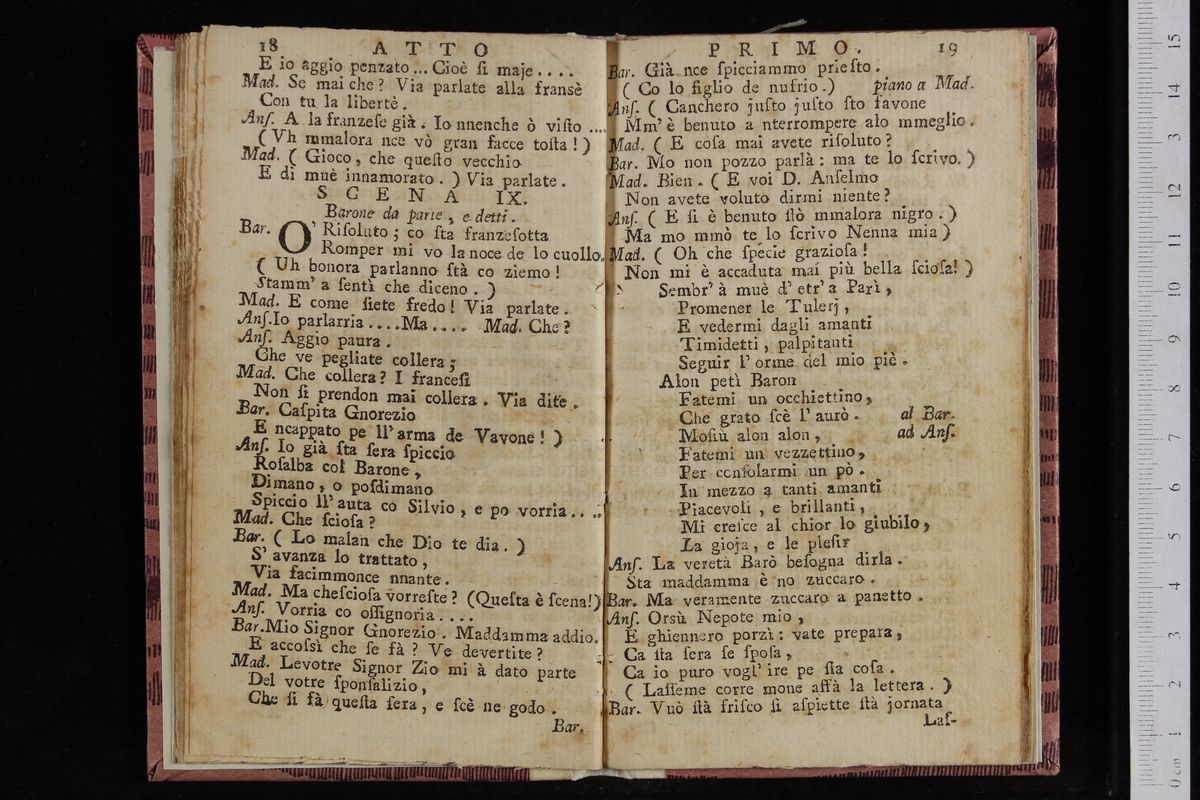 18 ATTO
E io aggio penzato ... Cioè ſi maje . . . .
Mad. Se mai che? Via parlate alla fransè
Con tu la libertè.
Anſ. A la franzeſe già. Io nnenche ò viſto ....
( Vh mmalora nce vò gran facce toſta! )
Mad. ( Gioco, che queſto vecchio
E di muè innamorato. ) Via parlate.
SCENA IX.
Barone da parte, e detti.
Bar. O' Riſoluto; co ſta franzeſotta
Romper mi vo la noce de lo cuollo.
( Uh bonora parlanno ſtà co ziemo!
Stamm' a ſentì che diceno. )
Mad. E come ſiete fredo! Via parlate.
Anſ. Io parlarria . . . . Ma . . . . Mad. Che?
Anſ. Aggio paura.
Che ve pegliate collera;
Mad. Che collera? I franceſi
Non ſi prendon mai collera. Via dite.
Bar. Caſpita Gnorezio
E ncappato pe ll' arma de Vavone! )
Anſ. Io già ſta ſera ſpiccio
Roſalba col Barone,
Dimano, o poſdimano
Spiccio ll' auta co Silvio, e po vorria. . ..
Mad. Che ſcioſa?
Bar. ( Lo malan che Dio te dia. )
S' avanza lo trattato,
Via facimmonce nnante.
Mad. Ma cheſcioſa vorreſte? (Queſta è ſcena!)
Anſ. Vorria co oſſignoria . . . .
Bar. Mio Signor Gnorezio. Maddamma addio.
E accoſsì che ſe fà? Ve devertite?
Mad. Levotre Signor Zio mi à dato parte
Del votre ſponſalizio,
Che ſi fà queſta ſera, e ſcè ne godo.
Bar.
PRIMO. 19
Bar. Già nce ſpicciammo prieſto.
( Co lo figlio de nufrio. ) piano a Mad.
Anſ. ( Canchero juſto juſto ſto favone
Mm' è benuto a nterrompere alo mmeglio.
Mad. ( E coſa mai avete riſoluto?
Bar. Mo non pozzo parlà: ma te lo ſcrivo. )
Mad. Bien. ( E voi D. Anſelmo
Non avete voluto dirmi niente?
Anſ. ( E ſi è benuto ſtò mmalora nigro. )
Ma mo mmò te lo ſcrivo Nenna mia )
Mad. ( Oh che ſpecie grazioſa!
Non mi è accaduta mai più bella ſcioſa! )
Sembr' à muè d' etr' a Parì,
Promener le Tulerj,
E vedermi dagli amanti
Timidetti, palpitanti
Seguir l' orme del mio piè.
Alon petì Baron
Fatemi un occhiettino,
Che grato ſcè l' aurò. al Bar.
Moſiù alon alon, ad Anſ.
Fatemi un vezzettino,
Per conſolarmi un pò.
In mezzo a tanti amanti
Piacevoli, e brillanti,
Mi creſce al chior lo giubilo,
La gioja, e le pleſir
Anſ. La veretà Barò beſogna dirla.
Sta maddamma è no zuccaro.
Bar. Ma veramente zuccaro a panetto.
Anſ. Orsù Nepote mio,
E ghiennero porzì: vate prepara,
Ca ſta ſera ſe ſpoſa,
Ca io puro vogl' ire pe ſta coſa.
( Laſſeme corre mone affà la lettera. )
Bar. Vuò ſtà friſco ſi aſpiette ſtà jornata
Laſ-
15
14
13
12
11
10
9
8
7
6
5
4
3
2
1
0 cm